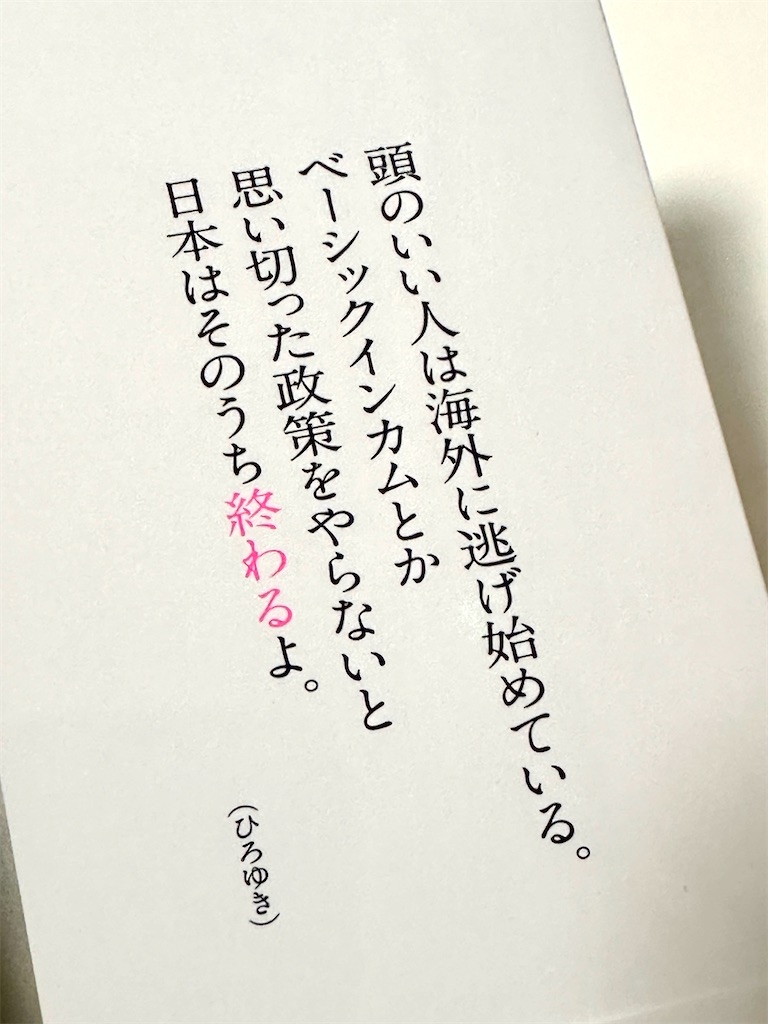 頭のいい人は海外に逃げ始めている。
ベーシックインカムとか
思い切った政策をやらないと
日本はそのうち終わるよ。
(ひろゆき)